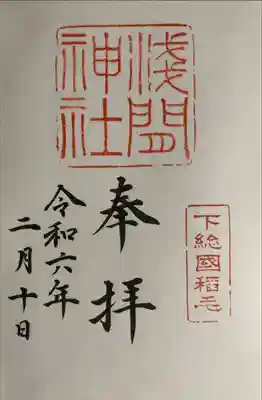 下総國稲毛
奉拝
浅間
神社
令和六年
二月十日